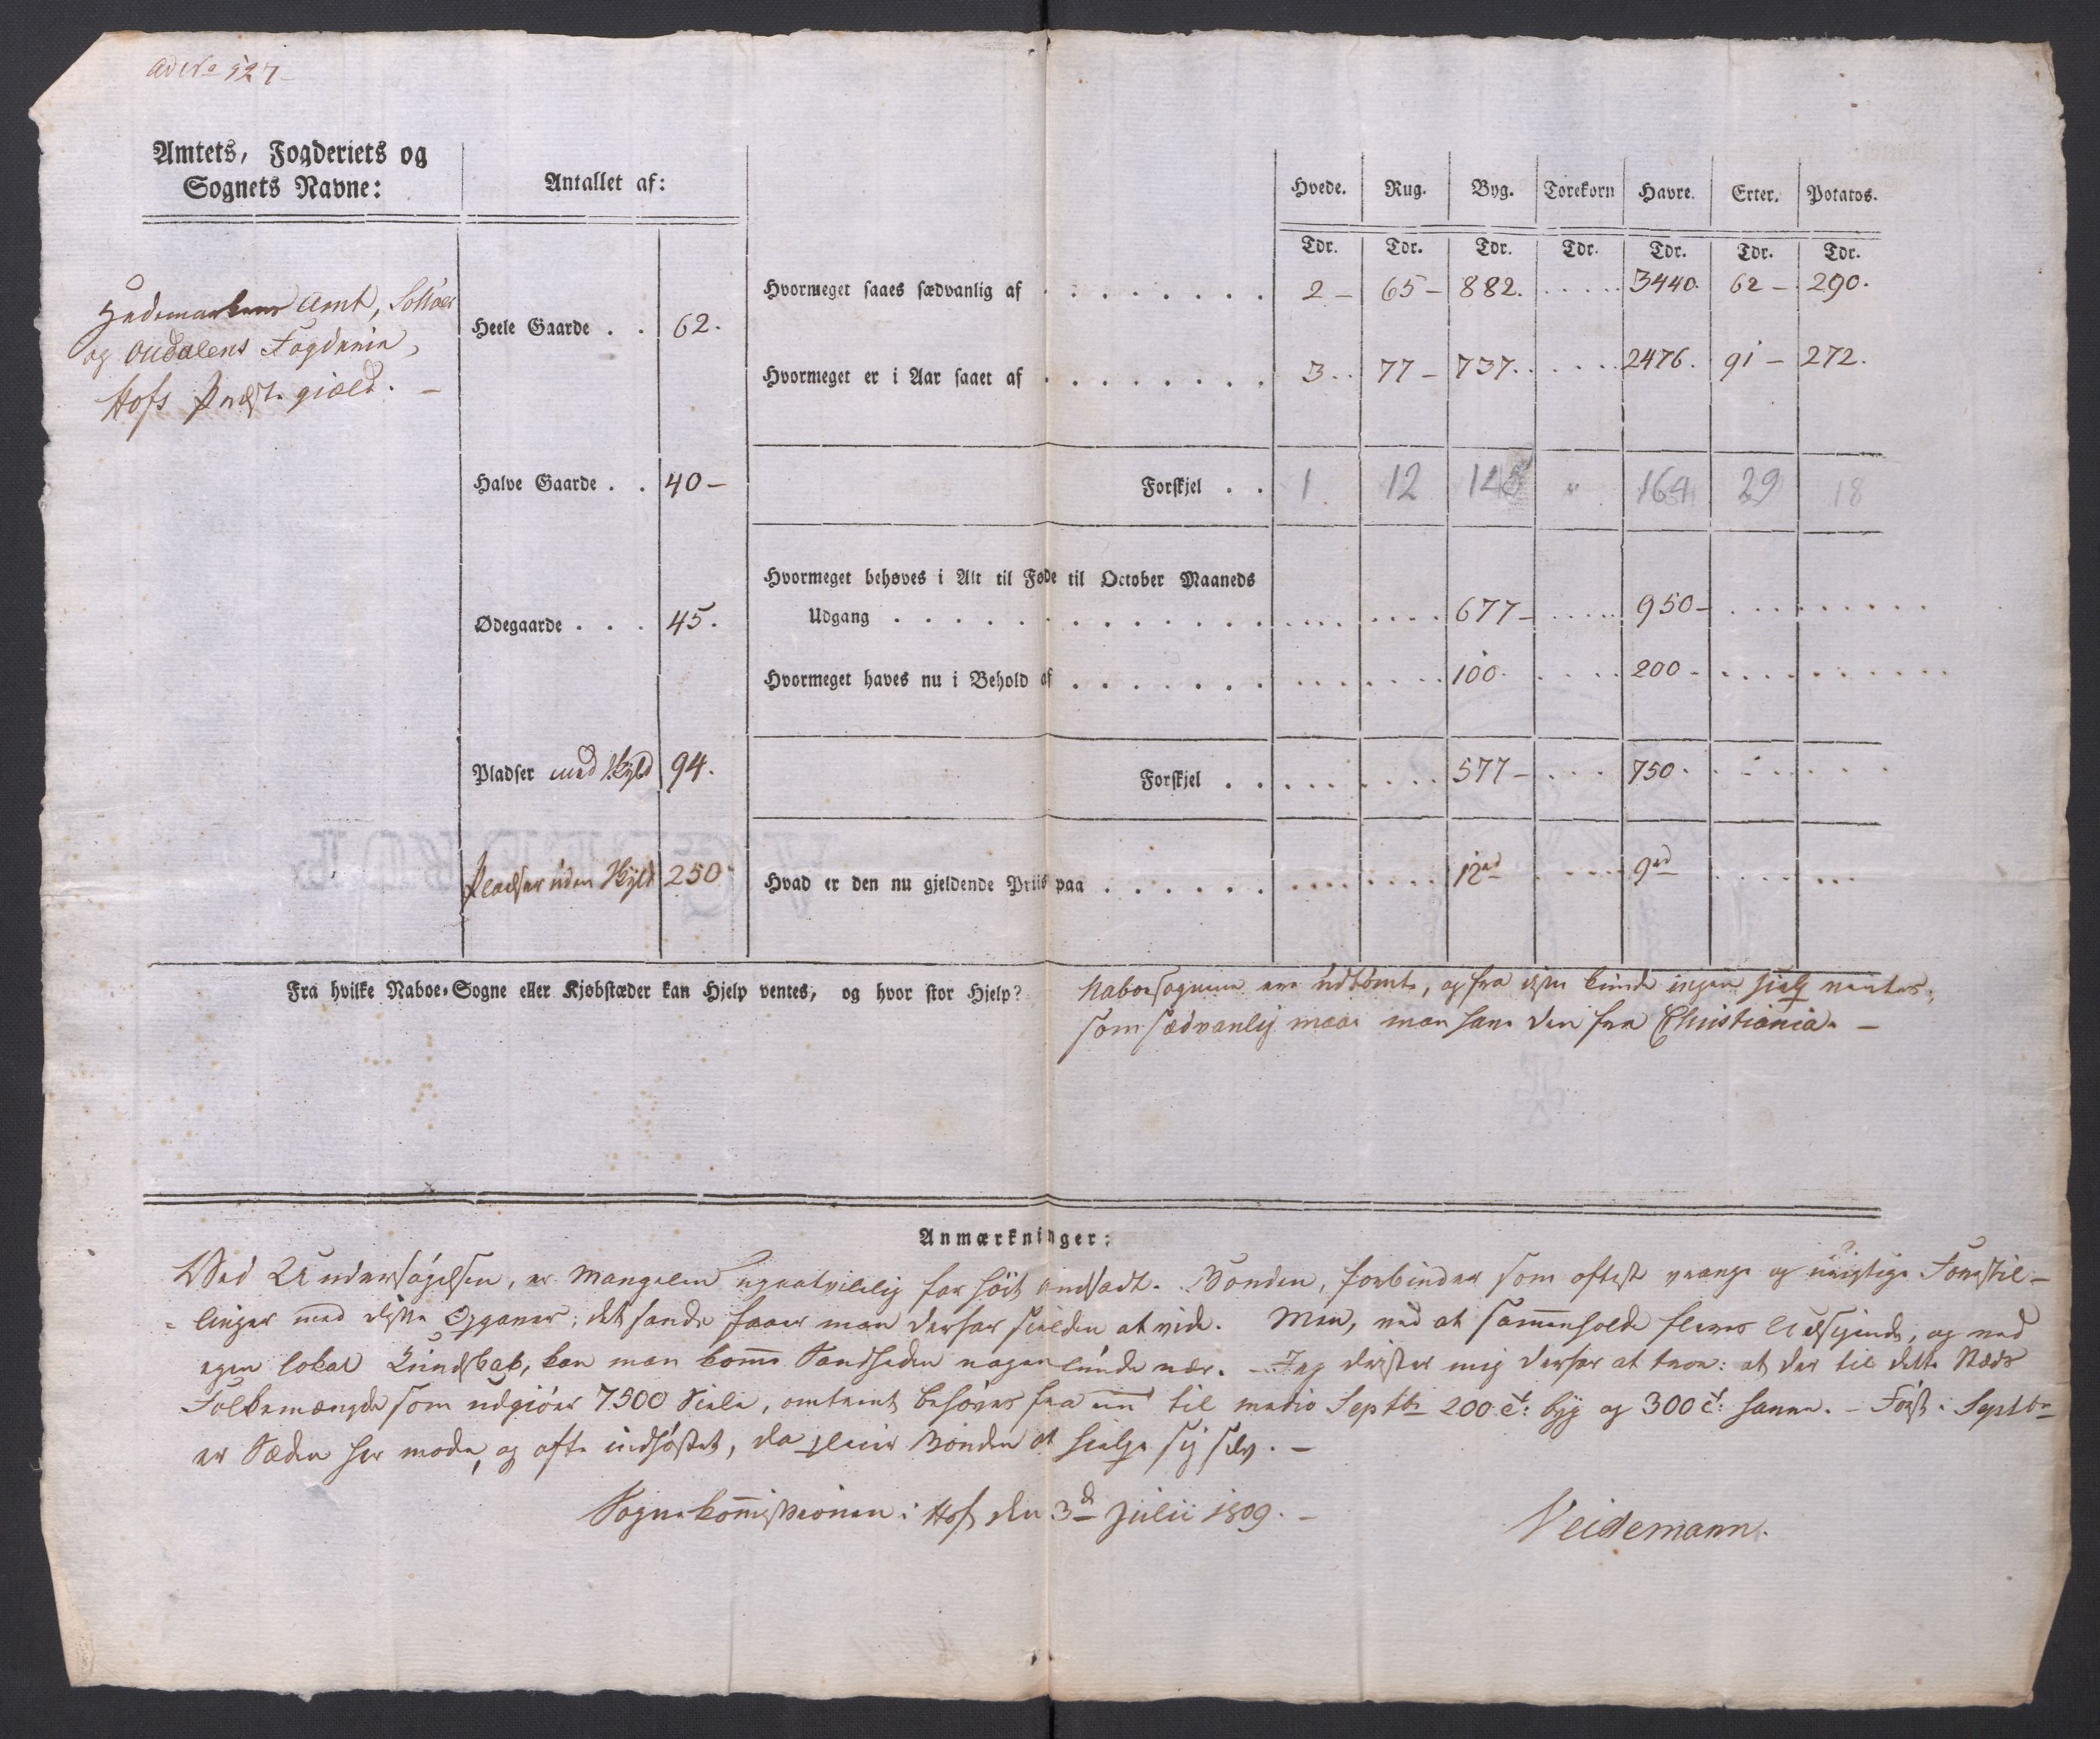 ad No 527
Amtets, Fogderiets og
Sognets Navne:
Antallet af:
Hvede. Rug. Byg. Torekorn Havre. Erter. Potatos.
Tdr. Tdr. Tdr. Tdr. Tdr. Tdr. Tdr.
Hedemarkens Amt, Solloer
og Oudalens Fogderie,
Hofs Præstegiæld. –
Heele Gaarde . . 62.
Halve Gaarde . . 40 –
Ødegaarde . . . 45.
Pladser med Skyld 94.
Pladser uden Skyld 250
Hvormeget saaes sædvanlig af 2 – 65 – 882. 3440. 62 – 290.
Hvormeget er i Aar saaet af 3. 77 – 737. 2476. 91 – 272.
Forskjel . . 1 12 145 " 164 29 18
Hvormeget behøves i Alt til Føde til October Maaneds
Udgang 677 – 950 –
Hvormeget haves nu i Behold af 100. 200 –
Forskjel . . 577 – 750.
Hvad er den nu gjeldende Priis paa 12rd 9rd
Fra hvilke Naboe-Sogne eller Kjøbstæder kan Hjelp ventes, og hvor stor Hjelp?
Naboesognene ere udtømte, og fra disse kunde ingen Hielp ventes;
som sædvanlig maae man have den fra Christiania. –
Anmærkninger:
Ved Undersøgelsen, er Mangelen ugeatvivlelig for høit andsadt. Bonden, forbinder som oftest vrange og urigtige Forestil-
-linger med disse Opgaver; det sande faaer man derfor sielden at vide. Men, ved at sammenholde fleres Udsigende, og ved
egen lokal Kundskab, kan man komme Sandheden nogenlunde nær. – Jeg drister mig derfor at troe: at der til dette Stæds
Folkemængde som udgiøer 7500 Siele, omtrent behøves fra nu til medio Septbr 200 : byg og 300 : havre. – Først i Septbr
er Sæden her moden, og ofte indhøstet, da pleier Bonden at hielpe sig selv. –
Sognekommissionen i Hof, den 3d Julii 1809. –
Neidemann.